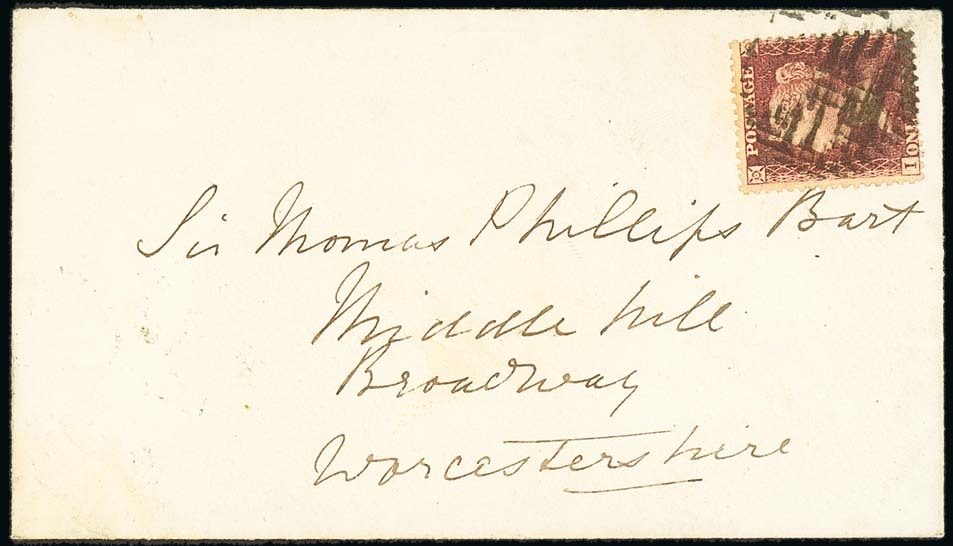 POSTAGE
I
ON
Sir Thomas Phillips Bart
Middle hill
Broadway
Worcestershire